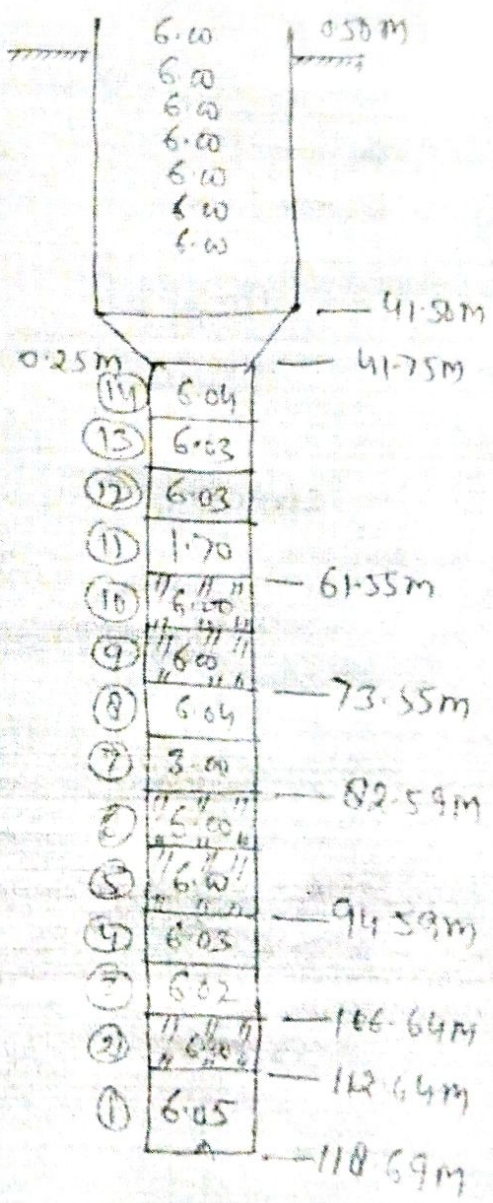 6.00 0.50m
6.00
6.00
6.00
6.00
6.00
6.00
41.50m
0.25m 41.75m
14 6.04
13 6.03
12 6.03
11 1.70
61.55m
10 6.00
9 6.00
73.55m
8 6.04
7 3.00
82.59m
6 6.00
5 6.00
94.59m
4 6.03
3 6.02
106.64m
2 6.00
112.64m
1 6.05
118.69m